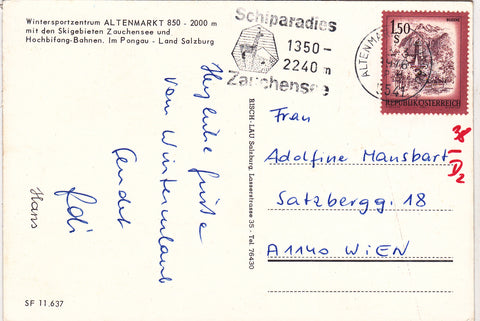 Wintersportzentrum ALTENMARKT 850 - 2000 m
mit den Skigebieten Zauchensee und
Hochbifang-Bahnen. Im Pongau - Land Salzburg
Schiparadies
1350-
2240 m
Zauchensee
ALTENMA
5541
1,50
S
REPUBLIK ÖSTERREICH
Herzliche Grüße
vom Winterurlaub
sendet
Hans
RISCH-LAU Salzburg, Lasserstrasse 35 - Tel. 76430
Frau
Adolfine Mansbart
Satzbergg. 18
A1140 WIEN
38
D2
SF 11.637